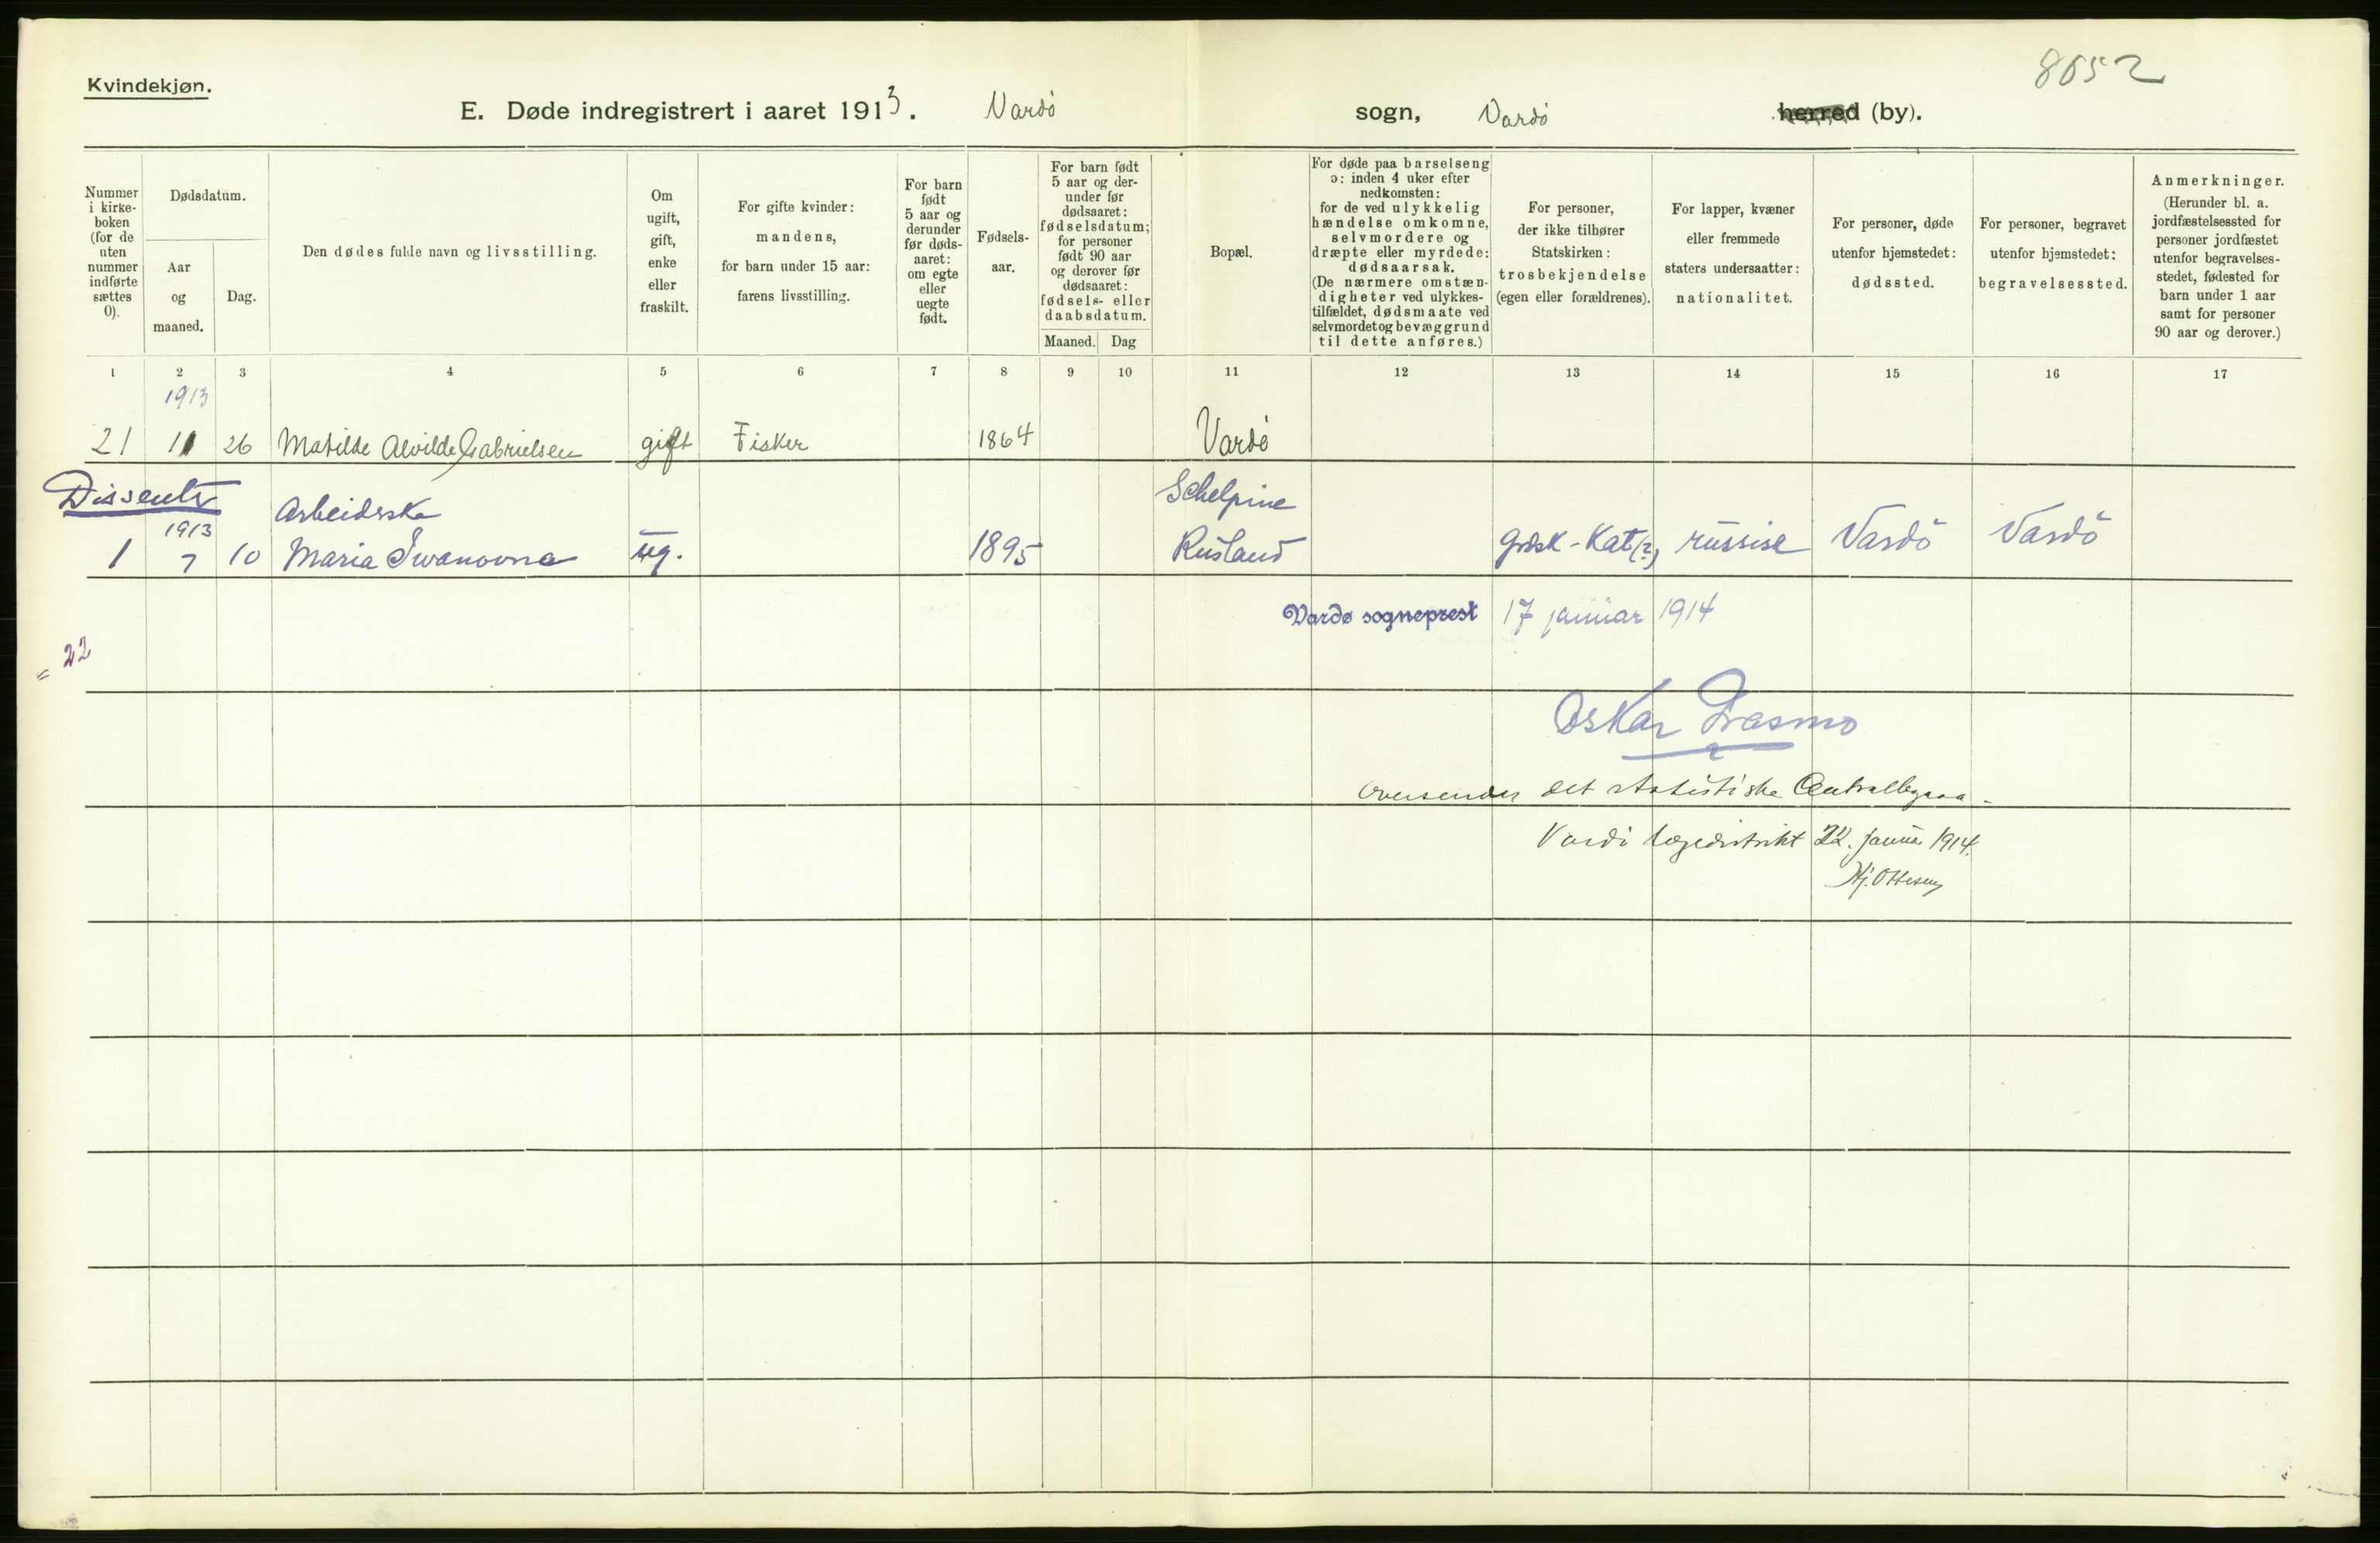 Kvindekjøn.
8652
E. Døde indregistrert i aaret 1913. Vardö sogn, Vardö herred (by).
Nummer i kirke-boken (for de uten nummer indførte sættes 0).
Dødsdatum.
Aar og maaned.
Dag.
Den dødes fulde navn og livsstilling.
Om ugift, gift, enke eller fraskilt.
For gifte kvinder: mandens, for barn under 15 aar: farens livsstilling.
For barn født 5 aar og derunder før døds-aaret: om egte eller uegte født.
Fødsels-aar.
For barn født 5 aar og der-under før dødsaaret: fødselsdatum; for personer født 90 aar og derover før dødsaaret: fødsels- eller daabsdatum.
Maaned. Dag
Bopæl.
For døde paa barselseng ɔ: inden 4 uker efter nedkomsten: for de ved ulykkelig hændelse omkomne, selvmordere og dræpte eller myrdede: dødsaarsak. (De nærmere omstæn-digheter ved ulykkes-tilfældet, dødsmaate ved selvmordet og bevæggrund til dette anføres.)
For personer, der ikke tilhører Statskirken: trosbekjendelse (egen eller forældrenes).
For lapper, kvæner eller fremmede staters undersaatter: nationalitet.
For personer, døde utenfor hjemstedet: dødssted.
For personer, begravet utenfor hjemstedet: begravelsessted.
Anmerkninger. (Herunder bl. a. jordfæstelsessted for personer jordfæstet utenfor begravelses-stedet, fødested for barn under 1 aar samt for personer 90 aar og derover.)
1 2 3 4 5 6 7 8 9 10 11 12 13 14 15 16 17
1913
21 11 26 Matilde Alvilde Gabrielsen gift Fisker 1864 Vardö
Dissenter Arbeiderske Schelpine
1913
1 7 10 Maria Iwanovna ug. 1895 Rusland græsk-Kat(?) russisk Vardö Vardö
Vardø sogneprest 17 januar 1914
= 22
Oskar
Oversendes det statistiske Centralbyraa.
Vardö lægedistrikt 22. januar 1914.
Hj. Ottesen